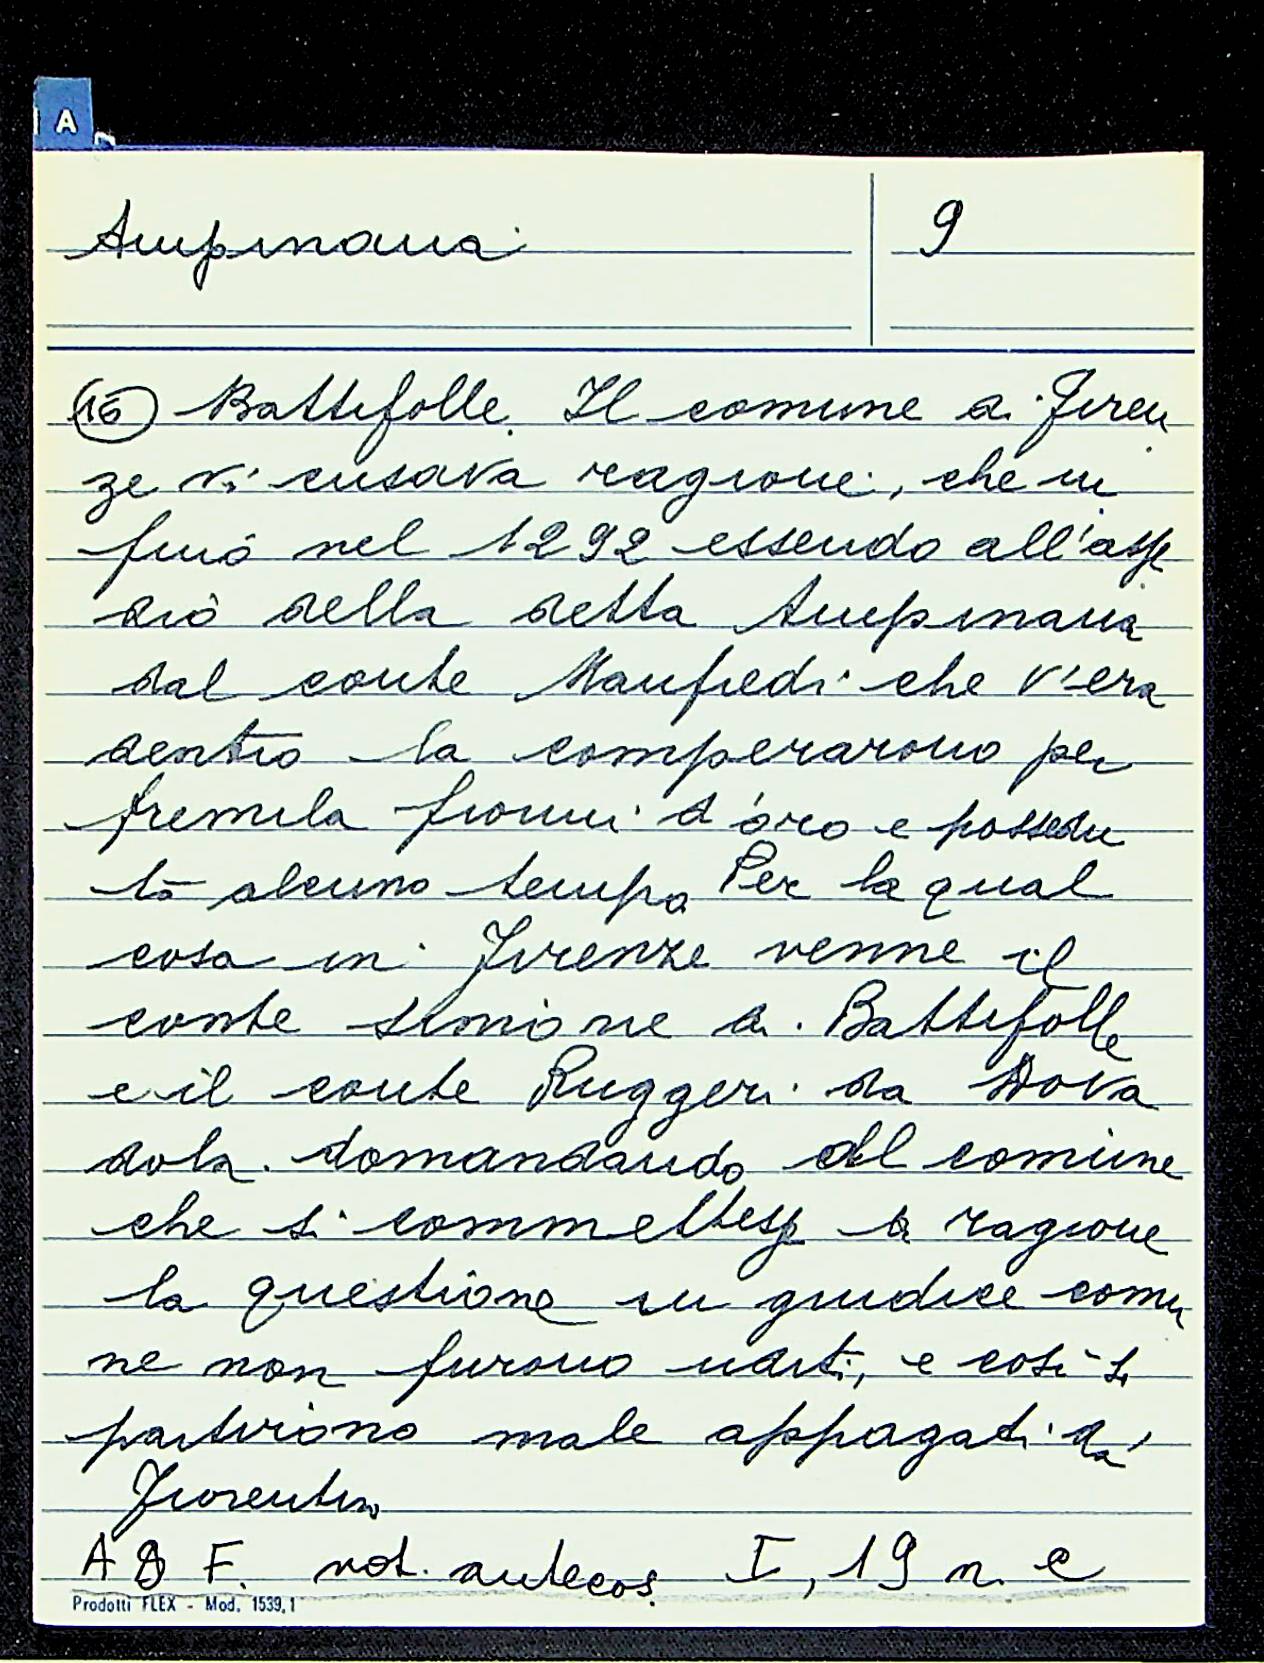 A
Ampinana 9
(16) Battifolle. Il comune di Firen
ze vi cusava ragione, che in
fino nel 1292 essendo all'asse
dio della detta Ampinana
dal conte Manfredi che v'era
dentro la comperarono per
tremila fiorini d'oro e possedu
to alcuno tempo Per la qual
cosa in Firenze venne il
conte Simone di Battifolle
e il conte Ruggeri da Dova
dola. domandando al comune
che si commettesse a ragione
la questione in giudice comu
ne non furono uditi, e così si
partirono male appagati da'
Fiorentini
A S F. not. antecos. I, 19 n. c
Prodotti FLEX - Mod. 1539,1